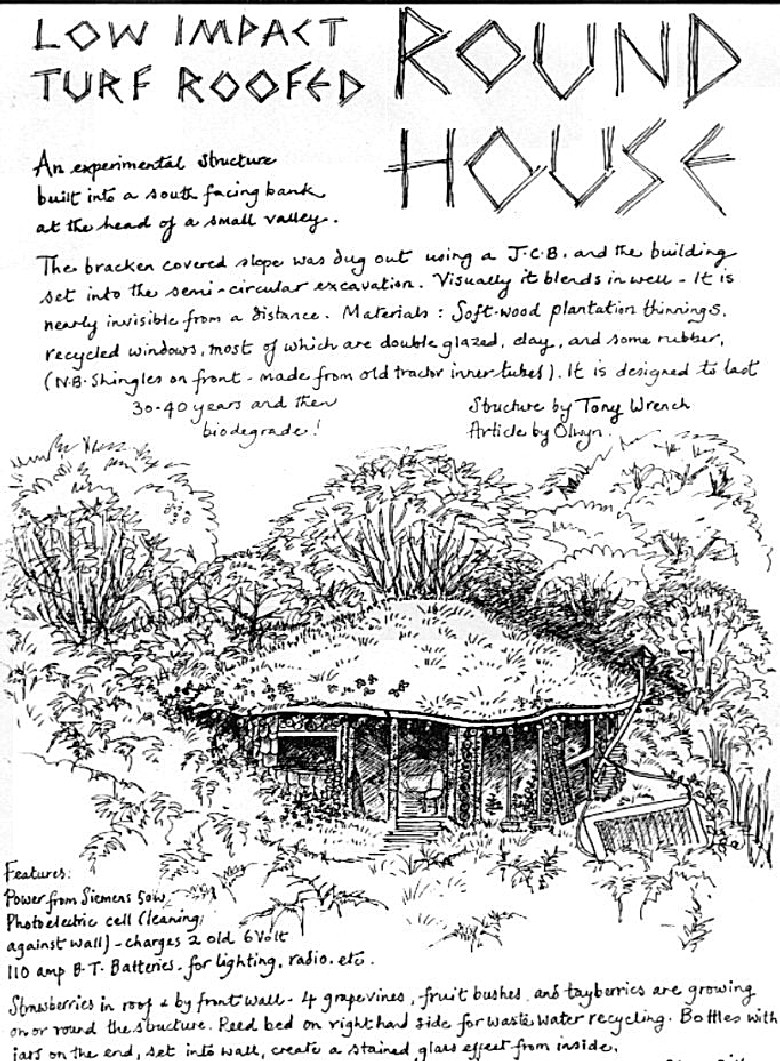 LOW IMPACT
TURF ROOFED
ROUND
HOUSE
An experimental structure
built into a south facing bank
at the head of a small valley.
The bracken covered slope was dug out using a J.C.B. and the building
set into the semi-circular excavation. Visually it blends in well - It is
nearly invisible from a distance. Materials: Soft-wood plantation thinnings,
recycled windows, most of which are double glazed, clay, and some rubber,
(N.B. Shingles on front - made from old tractor inner tubes). It is designed to last
30-40 years and then
biodegrade!
Structure by Tony Wrench
Article by Olwyn.
Features:
Power from Siemens 50w
Photoelectric cell (leaning
against wall) - charges 2 old 6Volt
110 amp B.T. Batteries. for lighting, radio. etc.
Strawberries in roof & by front wall - 4 grapevines, fruit bushes, and tayberries are growing
on or round the structure. Reed bed on right hand side for waste water recycling. Bottles with
jars on the end, set into wall, create a stained glass effect from inside.